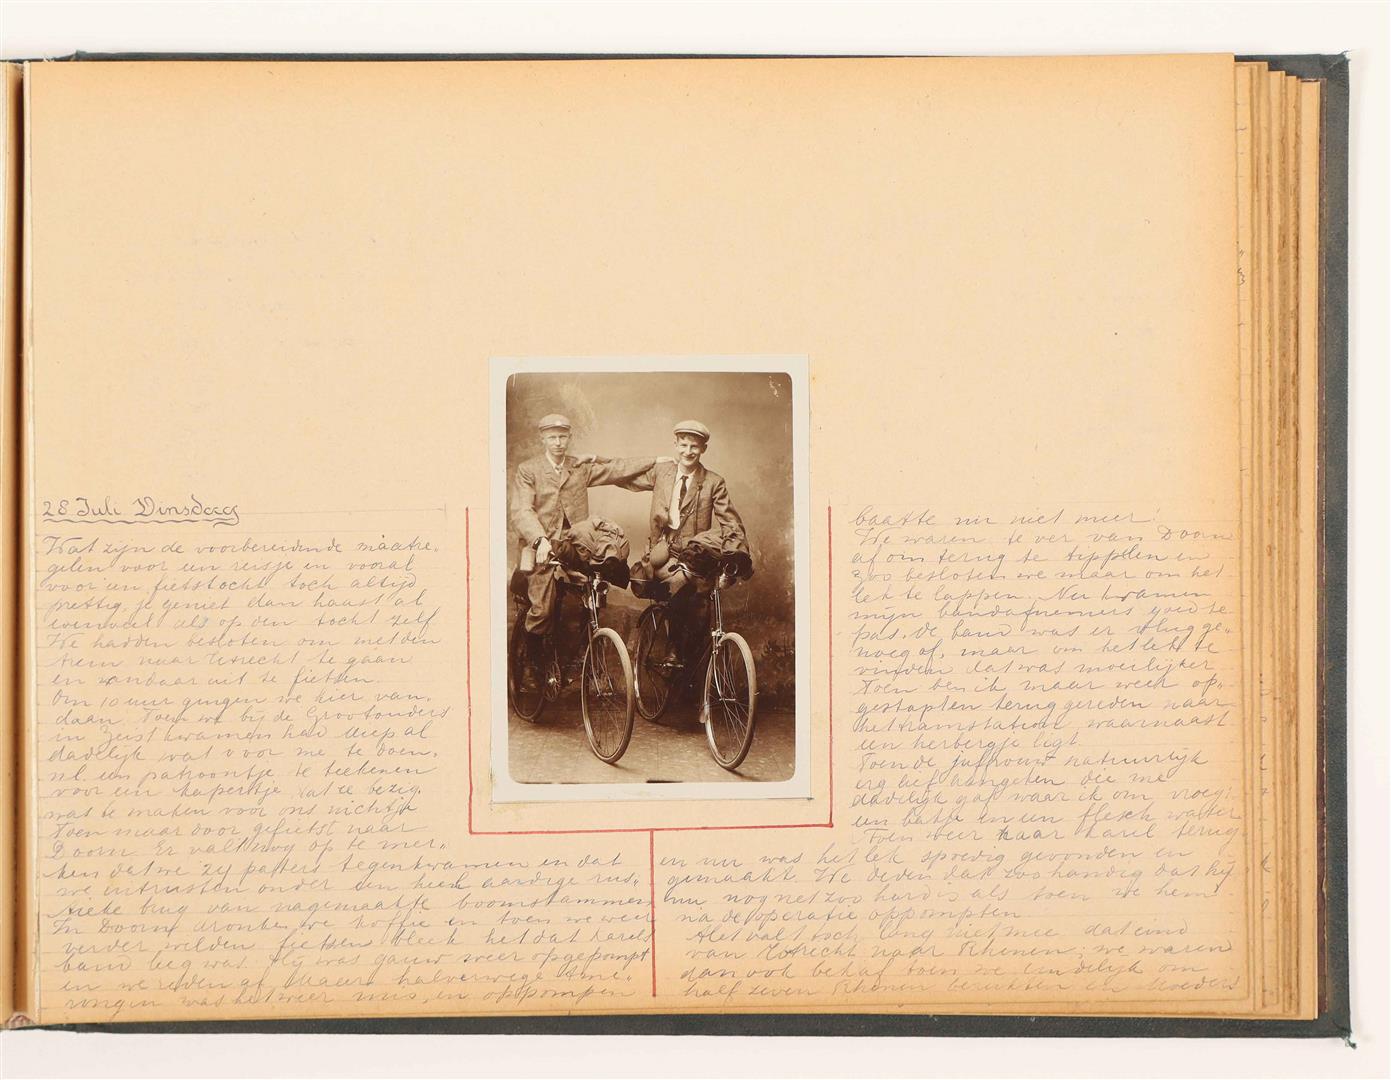 28 Juli Dinsdag
Wat zijn de voorbereidende maatre„
gelen voor een reisje en vooral
voor een fietstocht toch altijd
prettig, je geniet dan haast al
evenveel als op den tocht zelf.
We hadden besloten om met den
trem naar Utrecht te gaan
en vandaar uit te fietsen.
Om 10 uur gingen we hier van„
daan. Toen we bij de Grootouders
in Zeist kwamen had Miep al
dadelijk wat voor me te doen.
nl. een patroontje te teekenen
voor een kapertje dat ze bezig
was te maken voor ons nichtje
Toen maar door gefietst naar
Doorn. Er valt nog op te mer„
ken dat we 24 paters tegenkwamen en dat
we uitrustten onder een heele aardige rus„
tieke brug van nagemaakte boomstammen
In Doorn dronken we koffie en toen we weer
verder wilden fietsen bleek het dat Karels
band leeg was. Hij was gauw weer opgepompt
en we reden af. Maar halverwege Ame„
rongen was het weer mis, en oppompen
baatte nu niet meer!
We waren te ver van Doorn
af om terug te tippelen en
zoo besloten we maar om het
lek te lappen. Nu kwamen
mijn bandafnemers goed te
pas. De band was er vlug ge„
noeg af, maar om het lek te
vinden dat was moeilijker
Toen ben ik maar weer op„
gestapten teruggereden naar
het tramstation waarnaast
een herbergje ligt
Toen de jufrouw natuurlijk
erg lief aangeten die me
dadelijk gaf waar ik om vroeg:
een bakje en een flesch water
Toen weer naar Karel terug
en nu was het lek spoedig gevonden en
gemaakt. We deden dat zoo handig dat hij
nu nog net zoo hard is als toen we hem
na de operatie oppompten.
Het valt toch lang niet mee dat eind
van Utrecht naar Rhenen, we waren
dan ook bekaf toen we eindelijk om
half zeven Rhenen bereikten en Moeders